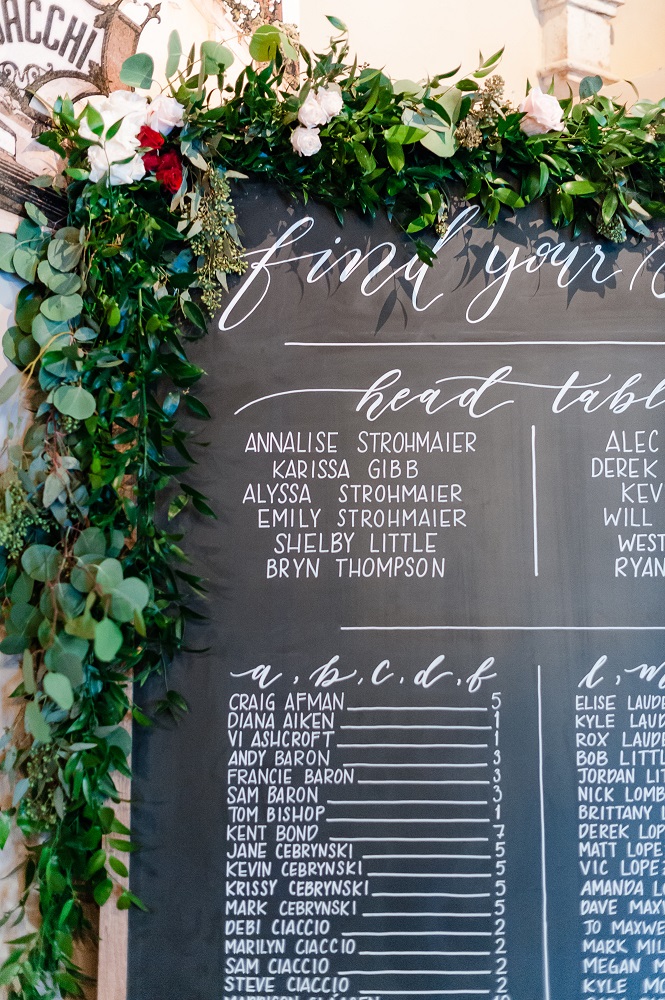 ACCHI
find your
head tabl
ANNALISE STROHMAIER
KARISSA GIBB
ALYSSA STROHMAIER
EMILY STROHMAIER
SHELBY LITTLE
BRYN THOMPSON
ALEC
DEREK
KEV
WILL
WEST
RYAN
a, b, c, d, f
CRAIG AFMAN 5
DIANA AIKEN 1
VI ASHCROFT 1
ANDY BARON 3
FRANCIE BARON 3
SAM BARON 3
TOM BISHOP 1
KENT BOND 7
JANE CEBRYNSKI 5
KEVIN CEBRYNSKI 5
KRISSY CEBRYNSKI 5
MARK CEBRYNSKI 5
DEBI CIACCIO 2
MARILYN CIACCIO 2
SAM CIACCIO 2
STEVE CIACCIO 2
l, m
ELISE LAUDE
KYLE LAUD
ROX LAUDE
BOB LITTL
JORDAN LIT
NICK LOMB
BRITTANY L
DEREK LOP
MATT LOPE
VIC LOPEZ
AMANDA LO
DAVE MAXW
JO MAXWE
MARK MIL
MEGAN M
KYLE MO